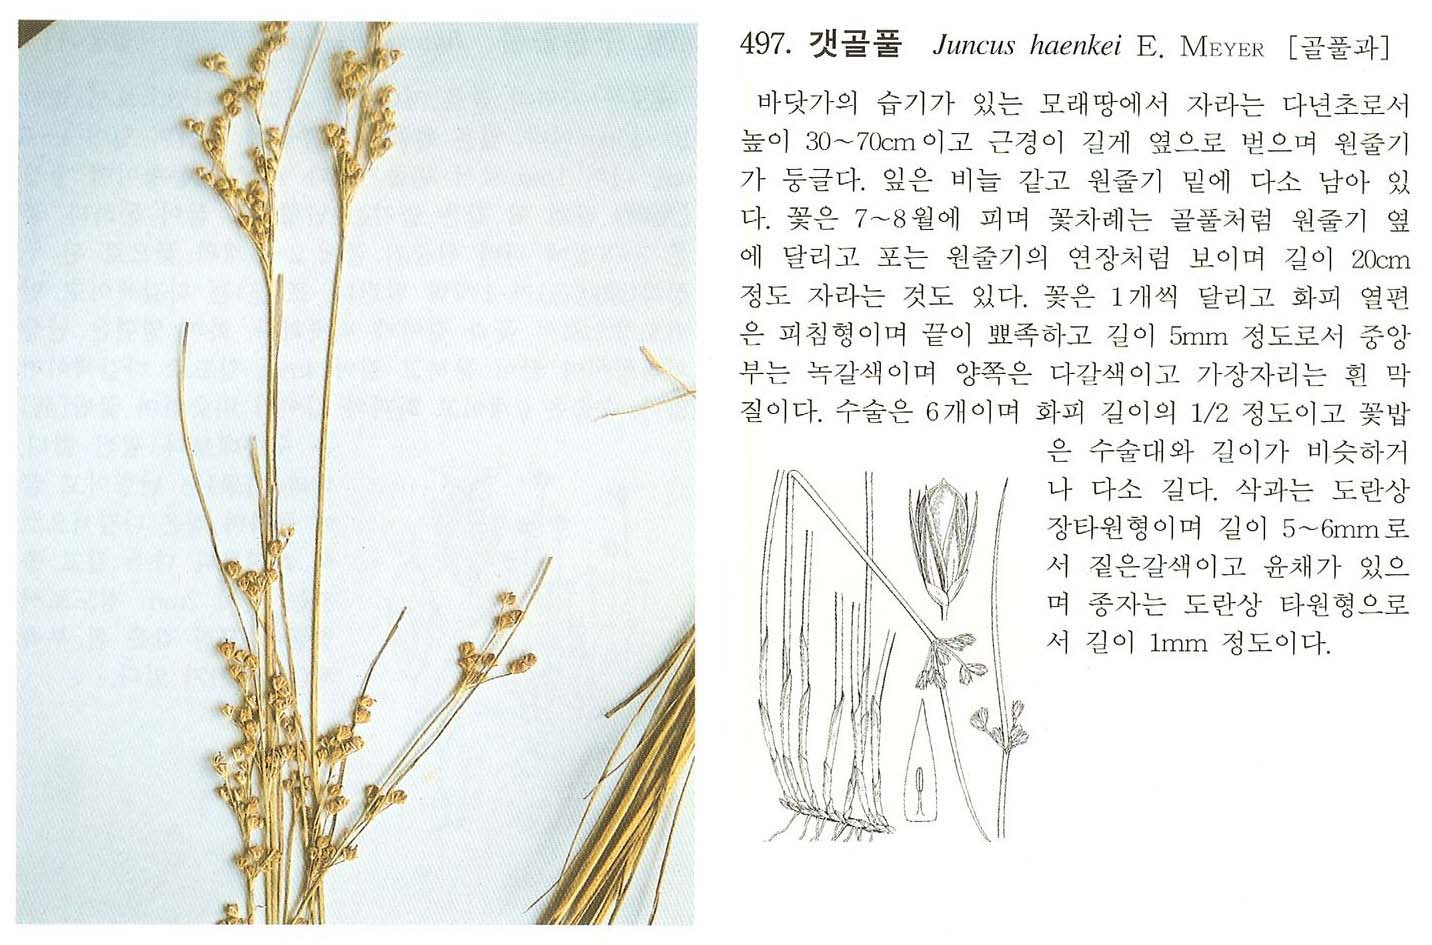 497. 갯골풀 Juncus haenkei E. MEYER [골풀과]
바닷가의 습기가 있는 모래땅에서 자라는 다년초로서
높이 30~70cm이고 근경이 길게 옆으로 벋으며 원줄기
가 둥글다. 잎은 비늘 같고 원줄기 밑에 다소 남아 있
다. 꽃은 7~8월에 피며 꽃차례는 골풀처럼 원줄기 옆
에 달리고 포는 원줄기의 연장처럼 보이며 길이 20cm
정도 자라는 것도 있다. 꽃은 1개씩 달리고 화피 열편
은 피침형이며 끝이 뾰족하고 길이 5mm 정도로서 중앙
부는 녹갈색이며 양쪽은 다갈색이고 가장자리는 흰 막
질이다. 수술은 6개이며 화피 길이의 1/2 정도이고 꽃밥
은 수술대와 길이가 비슷하거
나 다소 길다. 삭과는 도란상
장타원형이며 길이 5~6mm로
서 짙은갈색이고 윤채가 있으
며 종자는 도란상 타원형으로
서 길이 1mm 정도이다.